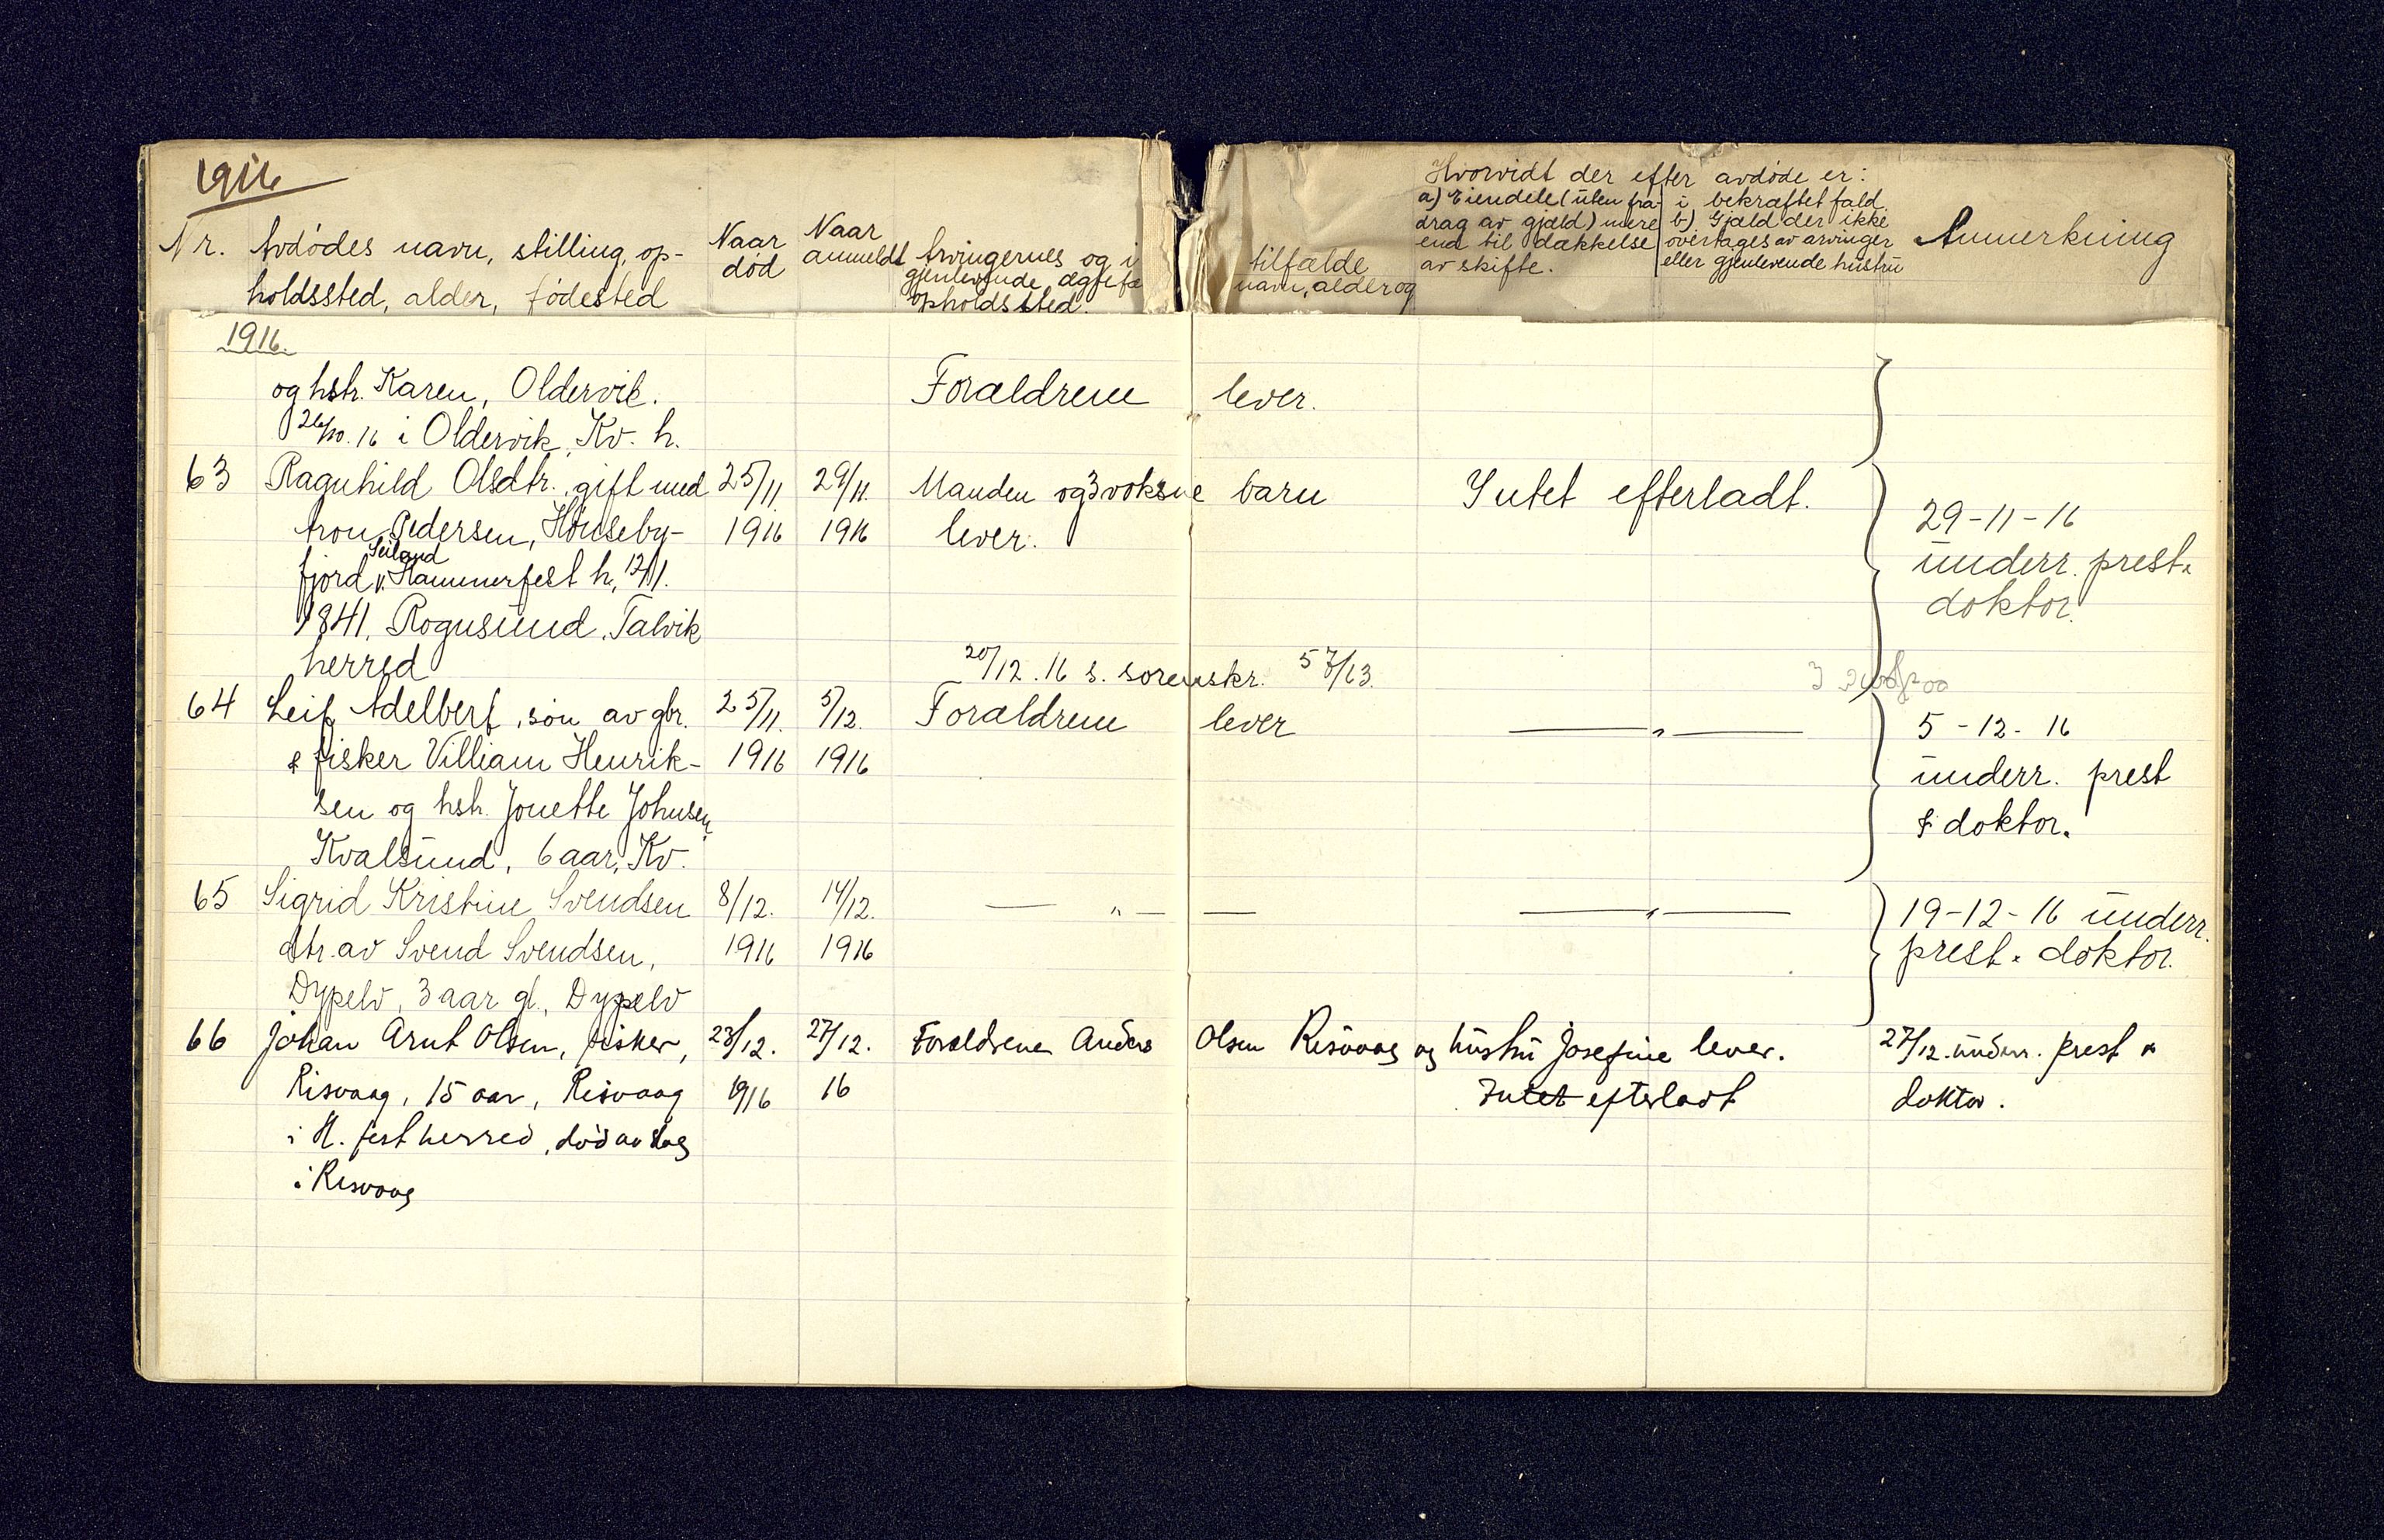 1916
Nr. Avdødes navn, stilling, op-
holdssted, alder, fødested
Naar
død
Naar
anmeldt
Arvingernes og i
gjenlevende ægtefæ
opholdssted.
tilfælde
navn, alder og
Hvorvidt der efter avdøde er:
a) Eiendele (uten fra-
drag av gjæld) mere
end til dækkelse
av skifte.
i bekræftet fald
b) Gjæld der ikke
overtages av arvinger
eller gjenlevende hustru
Anmerkning
1916.
og hstr. Karen, Oldervik. Forældrene lever.
26/10.16 i Oldervik, Kv. h.
63 Ragnhild Olsdtr., gift med 25/11. 29/11. Manden og 3 voksne barn Intet efterladt.
Aron Pedersen, Hønseby- 1916 1916 lever. 29-11-16
Seiland
fjord, Hammerfest h, 12/11. underr. prest &
1841, Rognsund, Talvik doktor.
herred
20/12.16 s. sorenskr. 57/13.
64 Leif Adelbert, søn av gbr. 25/11. 5/12. Forældrene lever —„— 5-12-16
& fisker Villiam Henrik- 1916 1916 underr. prest
sen og hstr. Jonette Johnsen, & doktor.
Kvalsund, 6 aar, Kv.
65 Sigrid Kristine Svendsen 8/12. 14/12. —„— — —„— 19-12-16 underr.
dtr. av Svend Svendsen, 1916 1916 prest & doktor.
Dypelv, 3 aar gl., Dypelv
66 Johan Arnt Olsen, fisker, 23/12. 27/12. Forældrene Anders Olsen Risvaag og hustru Josefine lever. 27/12. underr. prest &
Risvaag, 15 aar, Risvaag 1916 16 Intet efterladt doktor.
i H.fest herred, død av slag
i Risvaag